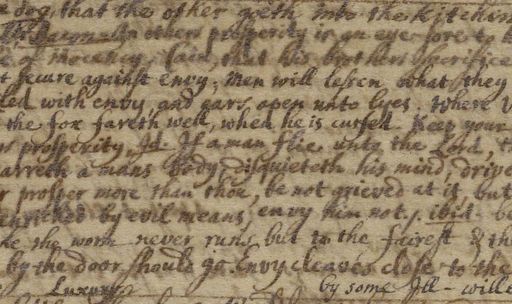 dog, that the other goeth into the kitchen
In others prosperity is an eye-sore to
said, that his brothers sacrifice
secure against Envy; Men will lessen what they
with envy, and ears open unto lyes. Where
the fox fareth well, when he is cursed. Keep your
prosperity. Id. If a man flie unto the Lord,
a mans body, disquieteth his mind,
prosper more than thou, be not grieved at it, but
by evil means, envy him not. ibid.
the worm never runs but to the fairest & the
by the door should go. Envy cleaves close to the
Luxury. by some Ill-wille